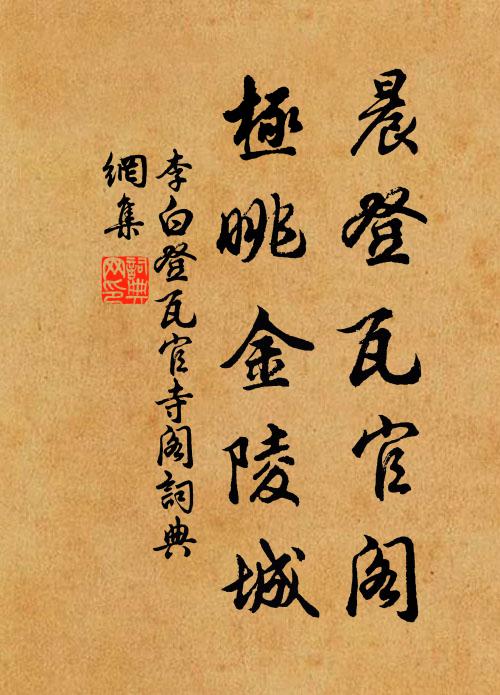 晨登瓦官阁
極眺金陵城
李白登瓦官寺阁詞典
網集
詞典
网印